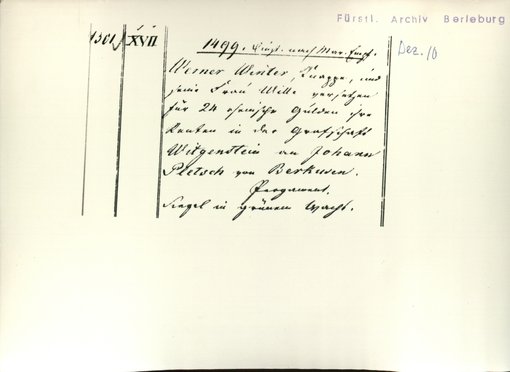 Fürstl. Archiv Berleburg
Dez. 10
1301 XVII
1499. Dinst. nach Mar. Empf.
Werner Winter, Knappe, und
seine Frau Wille versetzen
für 24 rheinische Gulden ihre
Renten in der Grafschaft
Witgenstein an Johann
Pletsch von Berkusen.
Pergament.
Siegel in grünem Wachs.